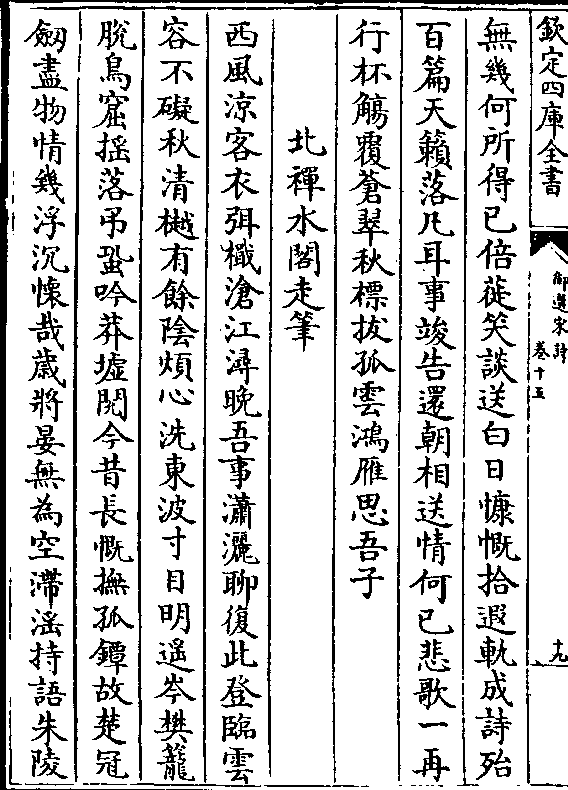 欽定四庫全書
御選宋詩
卷十五
十九
無幾何所得已倍蓰笑談送白日慷慨拾遐軌成詩殆
百篇天籟落几耳事竣告還朝相送情何已悲歌一再
行杯觴覆蒼翠秋標拔孤雲鴻雁思吾子
北禪水閣走筆
西風涼客衣弭檝滄江潯晚吾事瀟灑聊復此登臨雲
容不礙秋清樾有餘陰煩心洗東波寸目明遥岑樊籠
脫鳥窟揺落弔蛩吟莽墟閱今昔長慨撫孤鐔故楚冠
劒盡物情幾浮沉懐哉歲將晏無為空滯滛持語朱陵